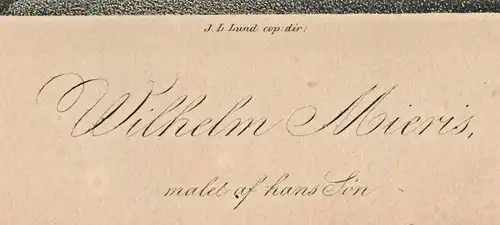 J. L. Lund cop: dir:
Wilhelm Mieris,
malet af hans Søn